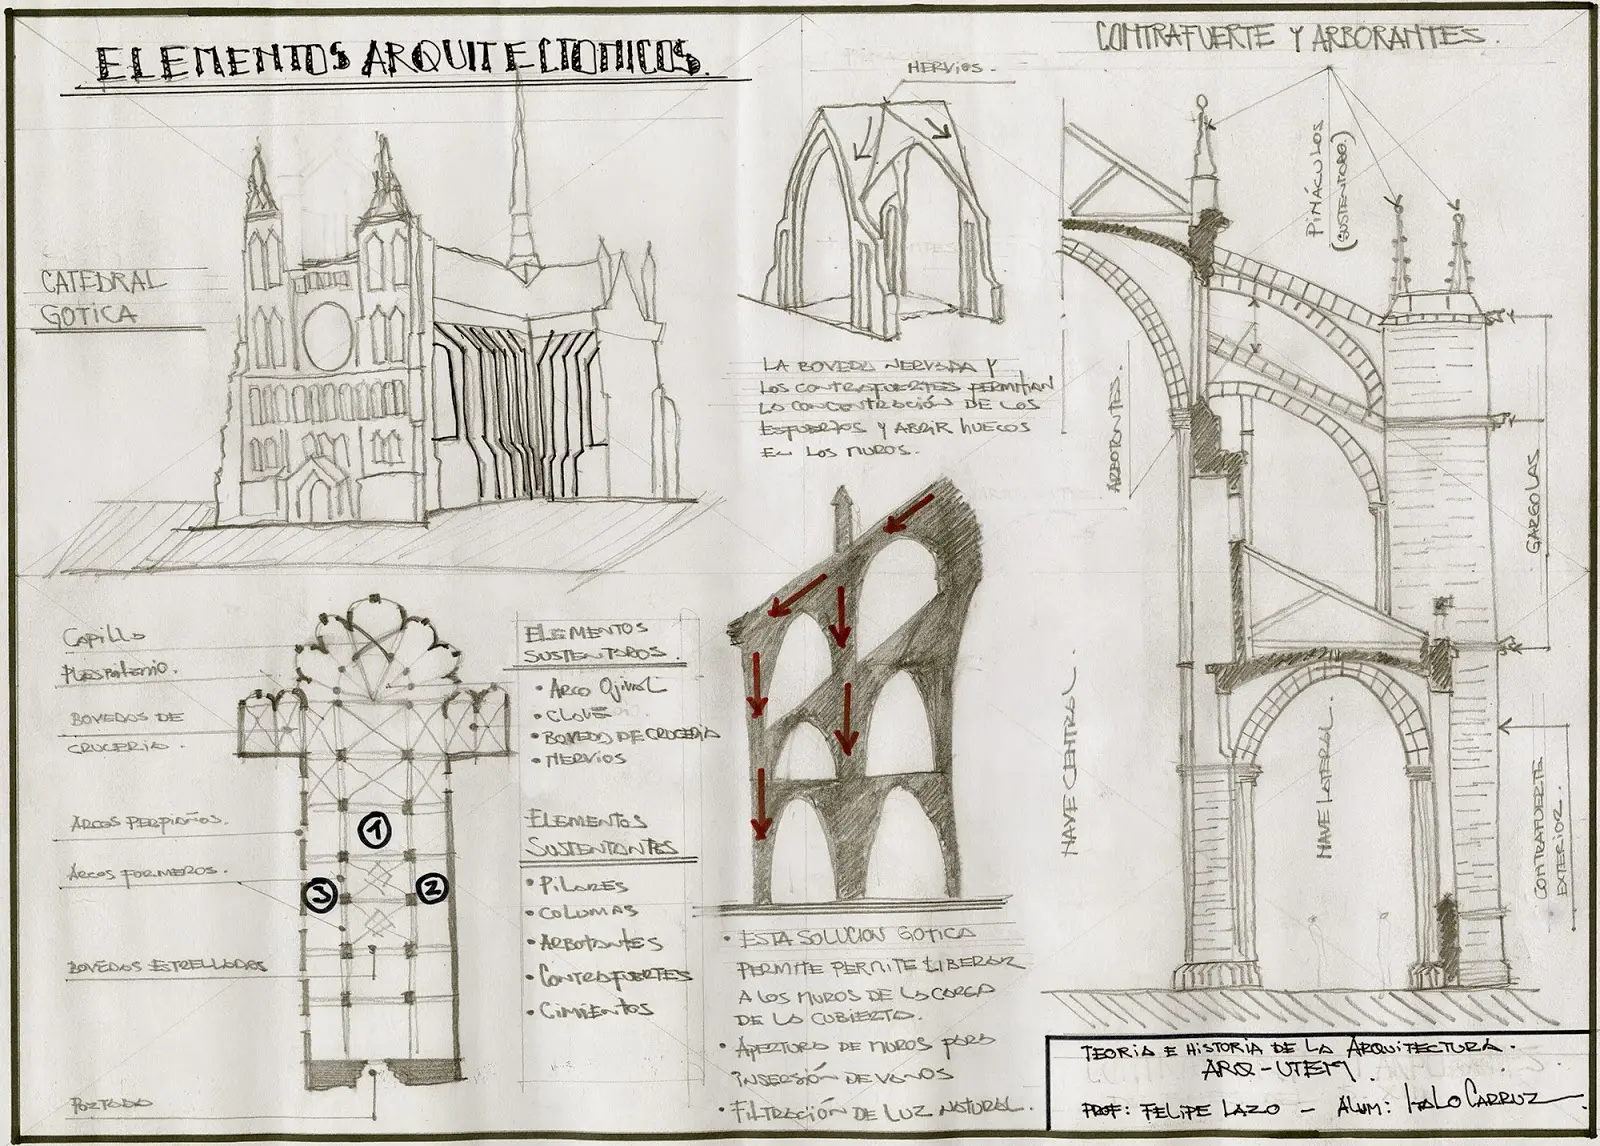 ELEMENTOS ARQUITECTONICOS.
CATEDRAL
GOTICA
NERVIOS.
LA BOVEDA NERVADA Y
LOS CONTRAFUERTES PERMITIAN
LA CONCENTRACIÓN DE LOS
ESFUERZOS Y ABRIR HUECOS
EN LOS MUROS.
CONTRAFUERTE Y ARBORANTES.
PINÁCULOS
(SUSTENTODO)
ARBOTONTES.
GARGOLAS
NAVE CENTRAL.
NAVE LATERAL.
CONTRAFUERTE
EXTERIOR.
Capilla
BOVEDAS DE
CRUCERIA.
ARCOS PERPIAÑOS.
ARCOS FORMEROS.
BOVEDAS ESTRELLADAS
PORTADA
1
3
2
ELEMENTOS
SUSTENTOROS.
• ARCO OJIVAL
• CLAVE
• BOVEDA DE CRUCERIA
• NERVIOS
ELEMENTOS
SUSTENTANTES
• PILARES
• COLUMAS
• ARBOTANTES
• CONTRAFUERTES
• CIMIENTOS
• ESTA SOLUCION GOTICA
PERMITE PERMITE LIBERAR
A LOS MUROS DE LA CARGA
DE LA CUBIERTA.
• APERTURA DE MUROS PARA
INSERSIÓN DE VANOS
• FILTRACIÓN DE LUZ NATURAL.
TEORIA E HISTORIA DE LA ARQUITECTURA.
ARQ-UTEM.
PROF: FELIPE LAZO - ALUM: ITALO CARRUZ